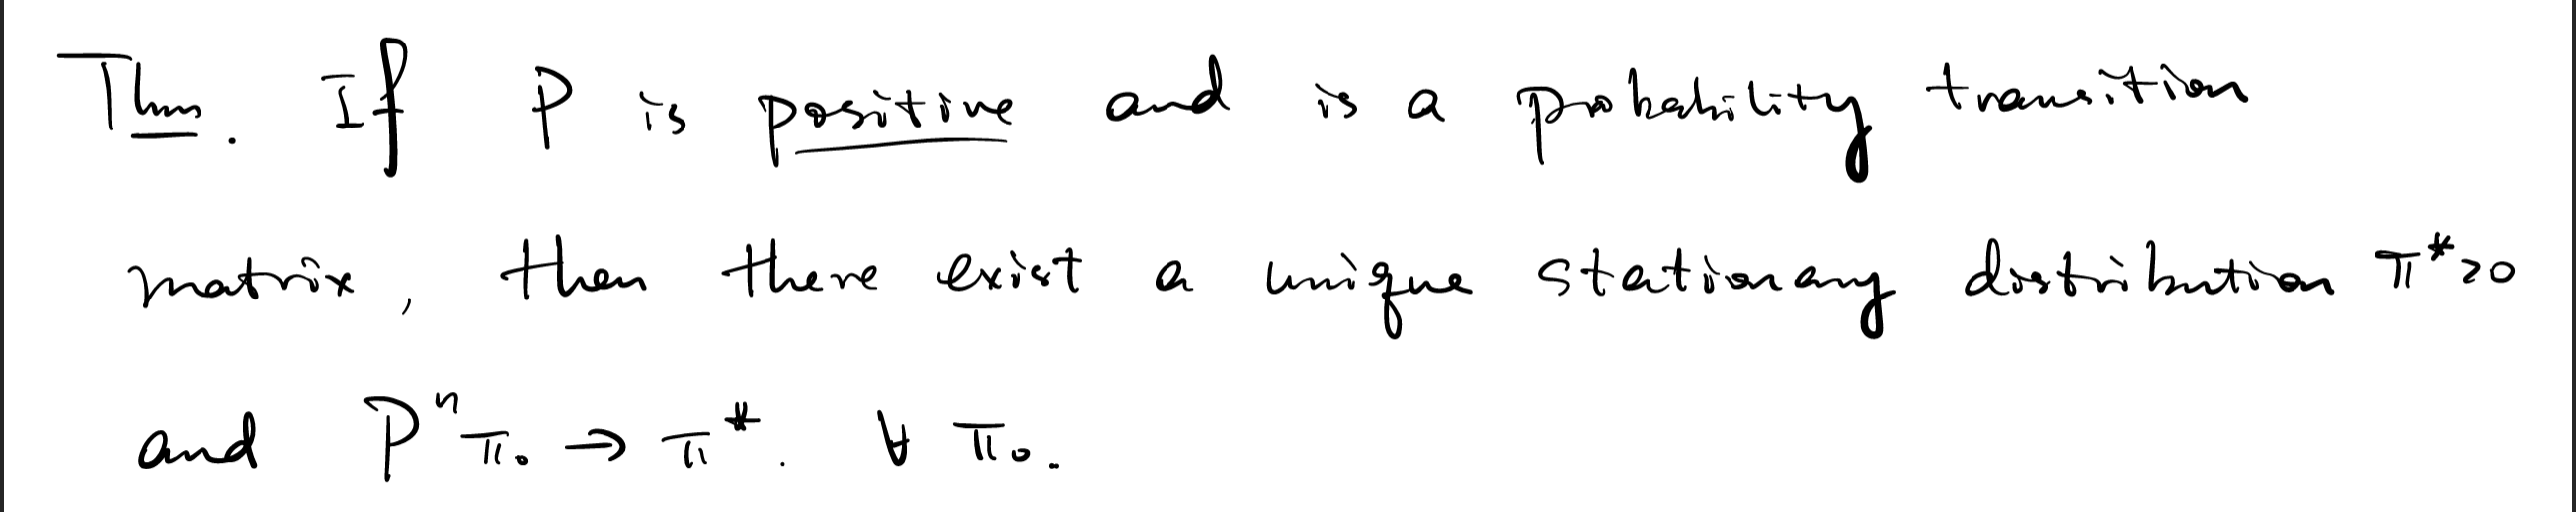 Thm. If P is positive and is a probability transition
matrix, then there exist a unique stationary distribution π*>0
and Pⁿπ₀ → π*. ∀ π₀.